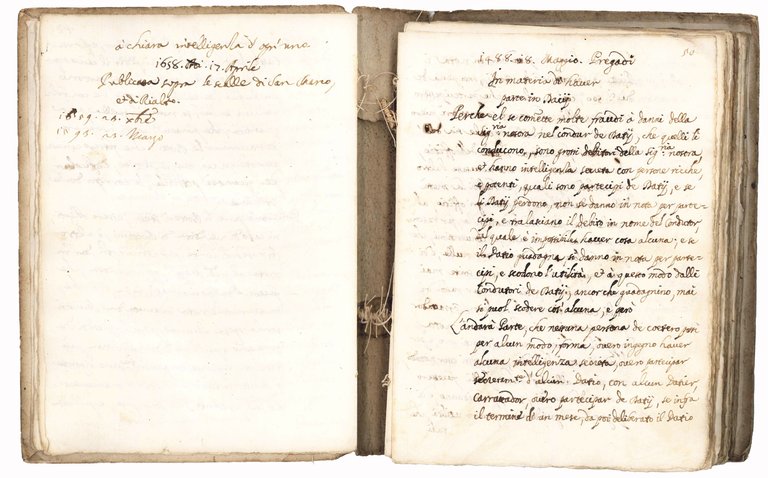 à chiara intelligenza d'ogn'uno.
1658. 17. Aprile
Publicata sopra le scalle di San Marco,
et di Rialto.
1659. 22.
1595. 21. Marzo
50
1488. 18. Mazio. Pregadi
In materia haver
parte in Datij
Perche el se comette molte fraudi à danni della
Sig.ria nostra nel condur de Datij, che quelli li
conducono, sono grossi debitori della Sig.ria nostra,
et hanno intelligenza secreta con persone riche,
e potenti, quali sono partecipi de Datij, e se
li Datij perdono, non se danno in nota per parte-
cipi, e ralassano il debito in nome del Conductor
dal quale è impossibile haver cosa alcuna; e se
il Datio guadagna, si danno in nota per parte-
cipi, e scodono l'utilità, et à questo modo dalli
Conductori de Datij, ancor che guadagnino, mai
si puol scodere cos'alcuna, e però
L'andarà Parte, che nessuna persona de coetero, possi
per alcun modo, forma, overo ingegno haver
alcuna intelligenza secreta, overo partecipar
secretam.te d'alcun Datio, con alcun Datier,
Carattador, overo partecipar de Datij, se infra
il termine di un mese, da poi deliberato il Datio